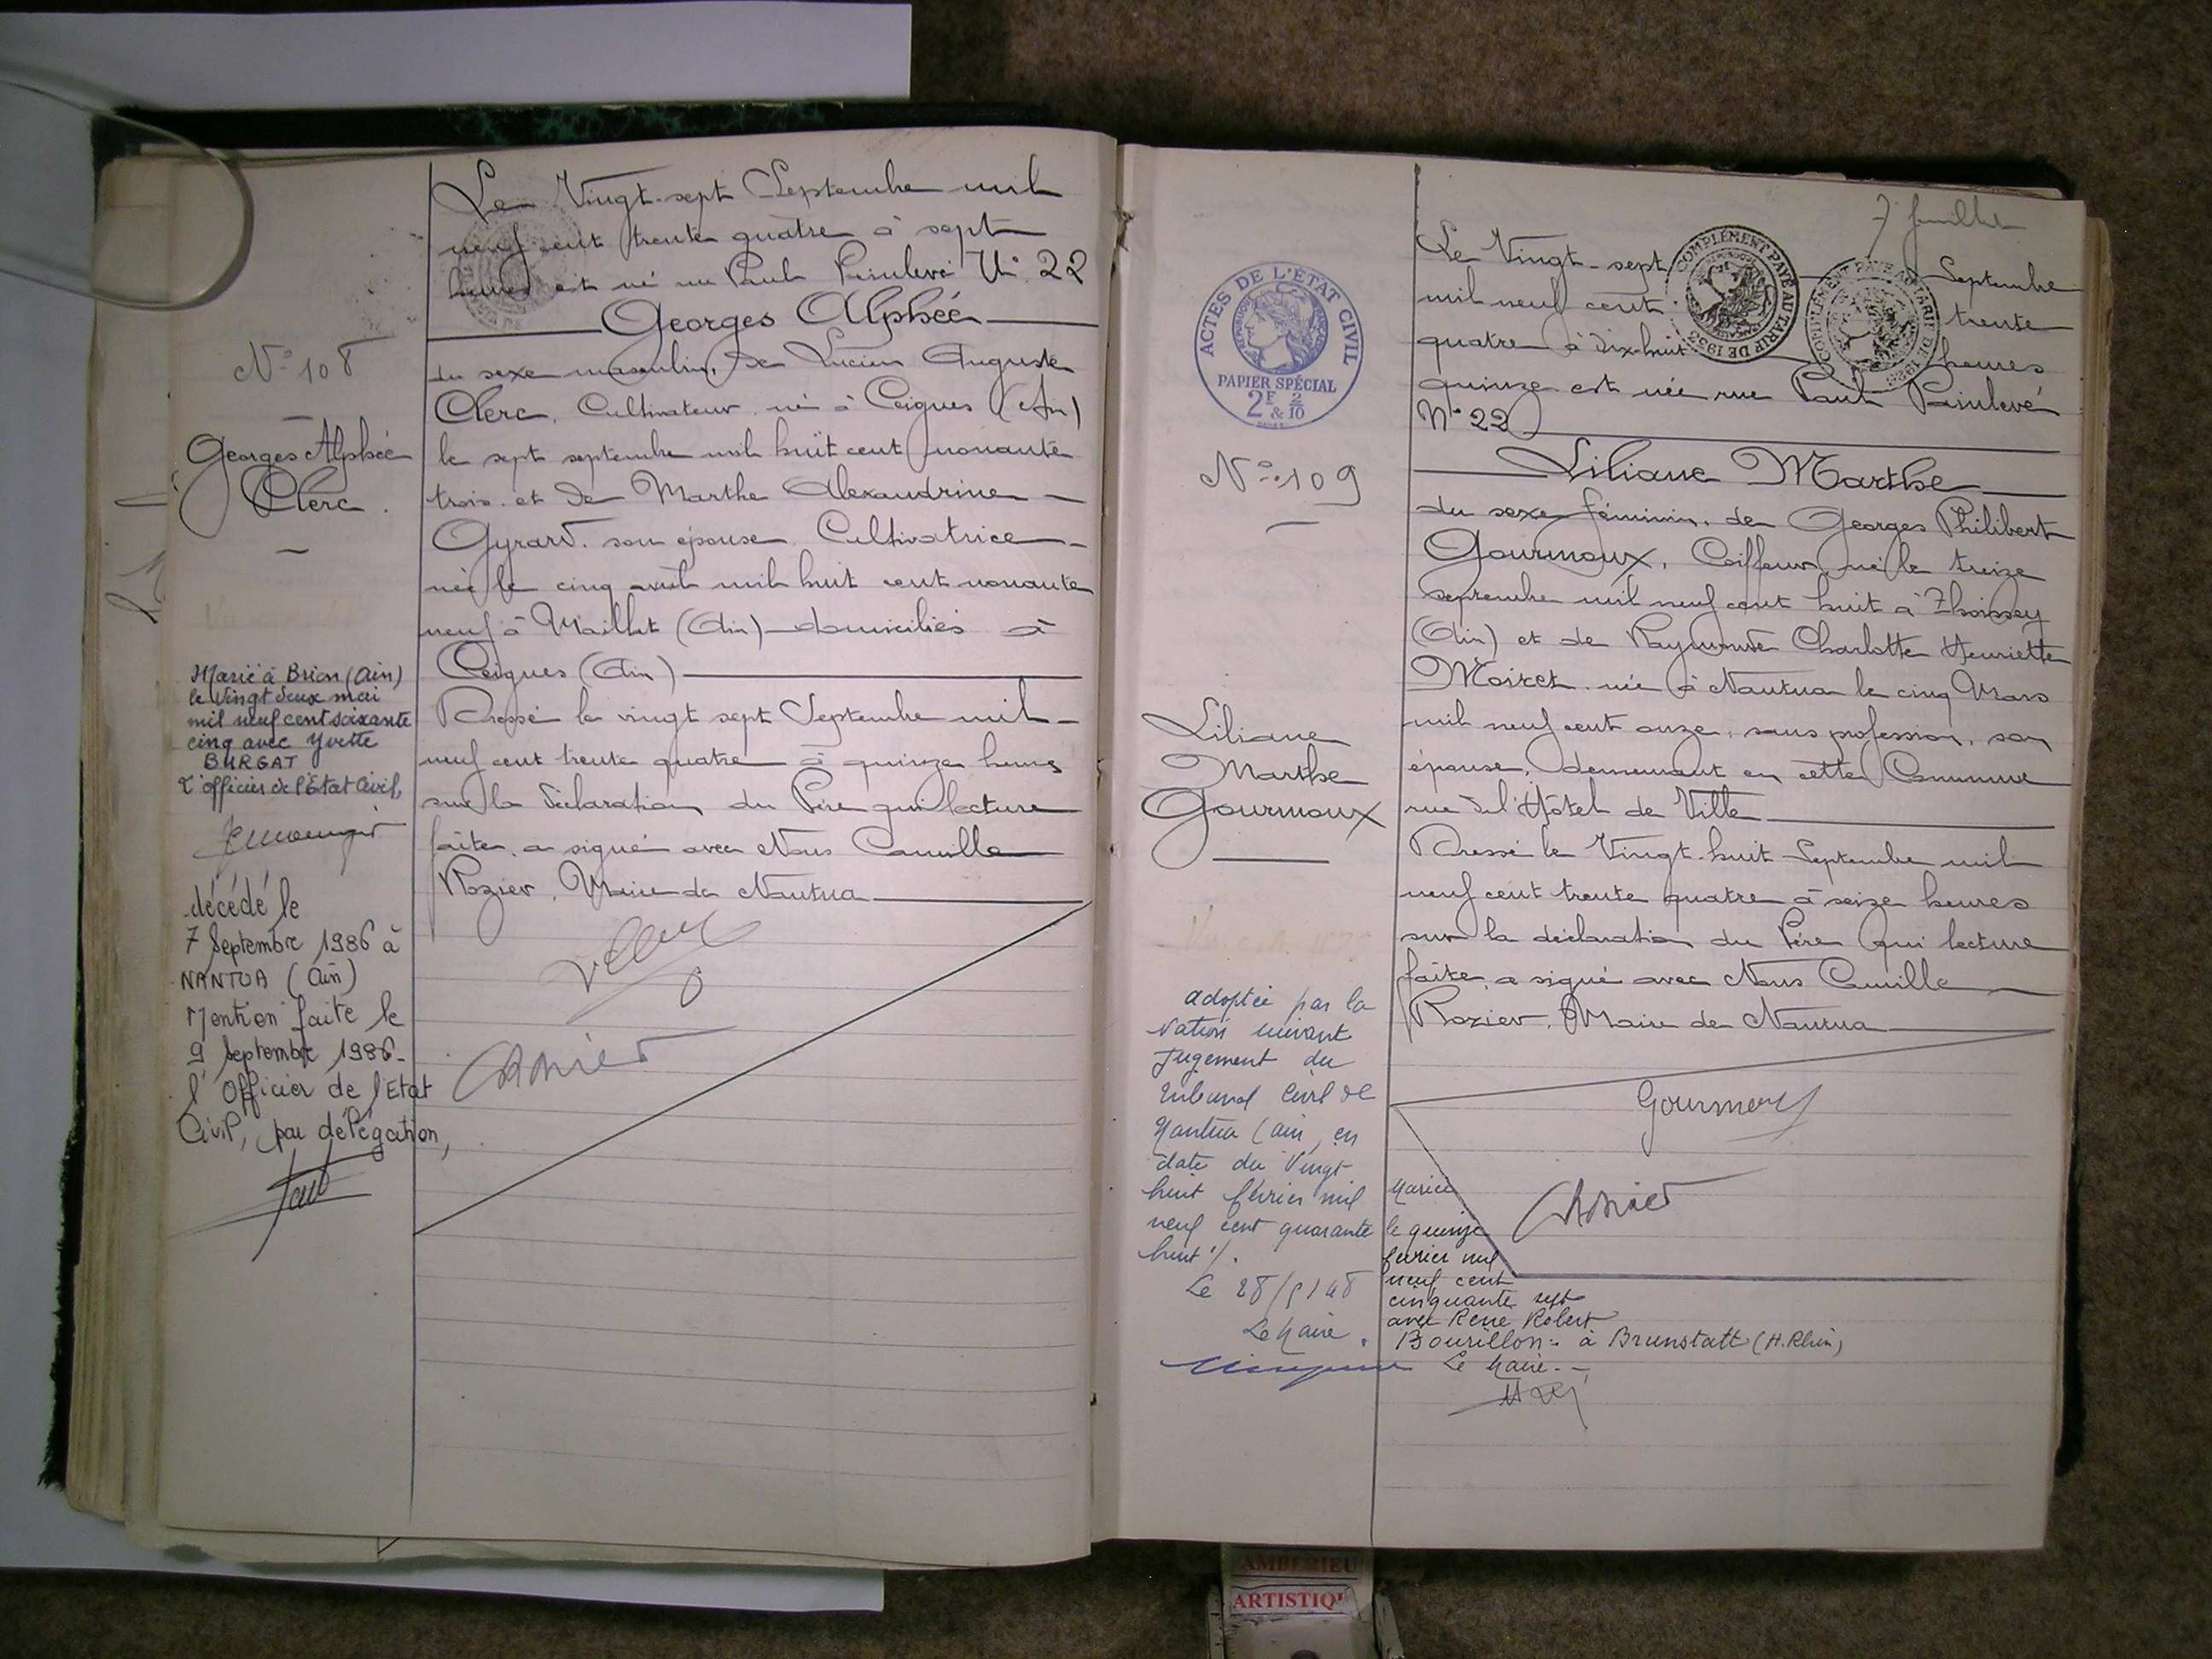 Le Vingt-sept Septembre mil
neuf cent trente quatre à sept
heures est né rue Paul Painlevé N° 22
Georges Alphée
du sexe masculin, de Lucien Auguste
Clerc, Cultivateur, né à Ceignes (Ain)
le sept septembre mil huit cent nonante
trois et de Marthe Alexandrine
Gyrard, son épouse, Cultivatrice
née le cinq avril mil huit cent nonante
neuf à Maillat (Ain) domiciliés à
Ceignes (Ain)
Dressé le vingt sept Septembre mil
neuf cent trente quatre à quinze heures
sur la déclaration du Père qui lecture
faite, a signé avec Nous Camille
Rozier, Maire de Nantua
N° 108
Georges Alphée
Clerc.
Marié à Brion (Ain)
le vingt deux mai
mil neuf cent soixante
cinq avec Yvette
BURGAT
L'officier de l'Etat Civil,
décédé le
7 Septembre 1986 à
NANTUA (Ain)
Mention faite le
9 Septembre 1986-
l'Officier de l'Etat
Civil, par délégation,
7 feuillet
Le Vingt-sept Septembre
mil neuf cent trente
quatre à dix-huit heures
quinze est née rue Paul Painlevé
N° 22
Liliane Marthe
du sexe féminin, de Georges Philibert
Gourmoux, Coiffeur, né le treize
septembre mil neuf cent huit à Thoissey
(Ain) et de Raymonde Charlotte Henriette
Moiret, née à Nantua le cinq Mars
mil neuf cent onze, sans profession, son
épouse, demeurant en cette Commune
rue de l'Hôtel de Ville
Dressé le Vingt-huit Septembre mil
neuf cent trente quatre à seize heures
sur la déclaration du Père qui lecture
faite, a signé avec Nous Camille
Rozier, Maire de Nantua
Gourmoux
COMPLÉMENT PAYÉ AU TARIF DE 1933
COMPLÉMENT PAYÉ AU TARIF DE 1933
ACTES DE L'ÉTAT CIVIL
RÉPUBLIQUE FRANÇAISE
PAPIER SPÉCIAL
2F & 2/10
N° 109
Liliane
Marthe
Gourmoux
adoptée par la
Nation suivant
Jugement du
tribunal Civil de
Nantua (ain, en
date du Vingt
huit février mil
neuf cent quarante
huit ./.
Le Maire.
Mariée
le quinze
février mil
neuf cent
cinquante sept
avec René Robert
Bourillon à Brunstatt (H. Rhin)
Le Maire.-
AMBERIEU
ARTISTIQU